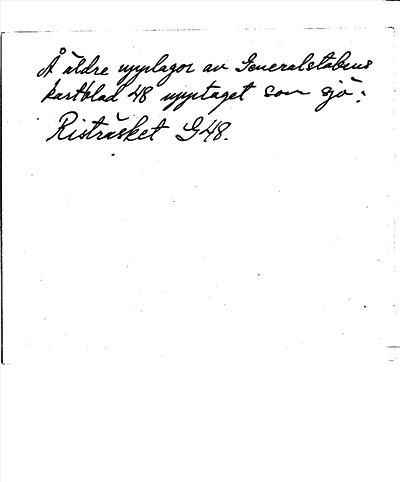 Å äldre upplagor av Generalstabens
kartblad 48 upptaget som sjö:
Risträsket G48.